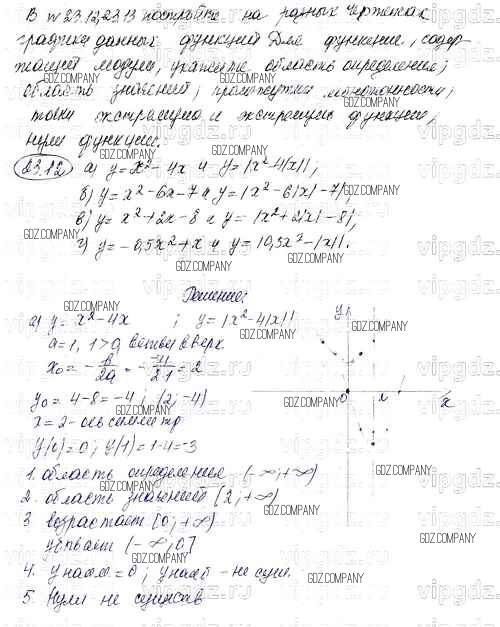 В № 23.12, 23.13 постройте на разных чертежах
графики данных функций Для функции, содер-
жащей модуль, укажите область определения;
область значений; промежутки монотонности,
точки экстремума и экстремумы функции,
нули функции.
23.12 а) y = x² - 4x и y = |x² - 4|x||;
б) y = x² - 6x - 7 и y = |x² - 6|x| - 7|;
в) y = x² + 2x - 8 и y = |x² + 2|x| - 8|,
г) y = -0,5x² + x и y = |0,5x² - |x||.
Решение:
а) y = x² - 4x ; y = |x² - 4|x||
a = 1, 1 > 0, ветви вверх
x₀ = -b/2a = - -4/2·1 = 2
y₀ = 4 - 8 = -4; (2; -4)
x = 2 - ось симметр
y(0) = 0; y(1) = 1 - 4 = -3
1. область определения (-∞; +∞)
2. область значений [2; +∞)
3 возрастает [0; +∞)
убывает (-∞; 0]
4. y наим = 0; y наиб - не сущ.
5. Нули не
y
0
x
GDZ.COMPANY
vipgdz.ru